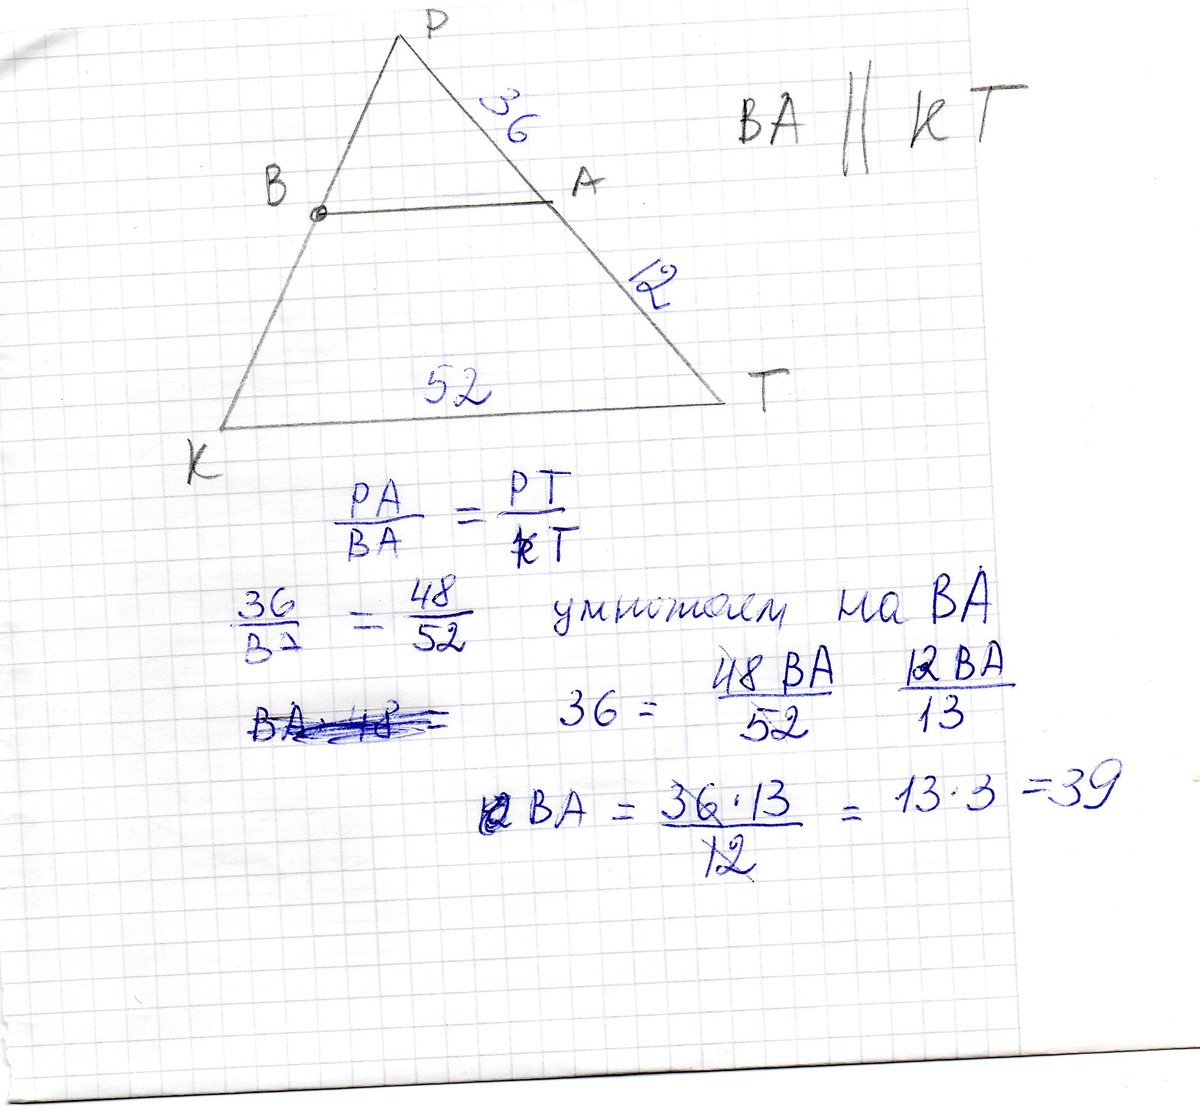 P
36
BA || KT
B
A
12
52
T
K
PA/BA = PT/KT
36/BA = 48/52 умножаем на BA
36 = 48 BA/52 12 BA/13
BA = 36·13/12 = 13·3 = 39